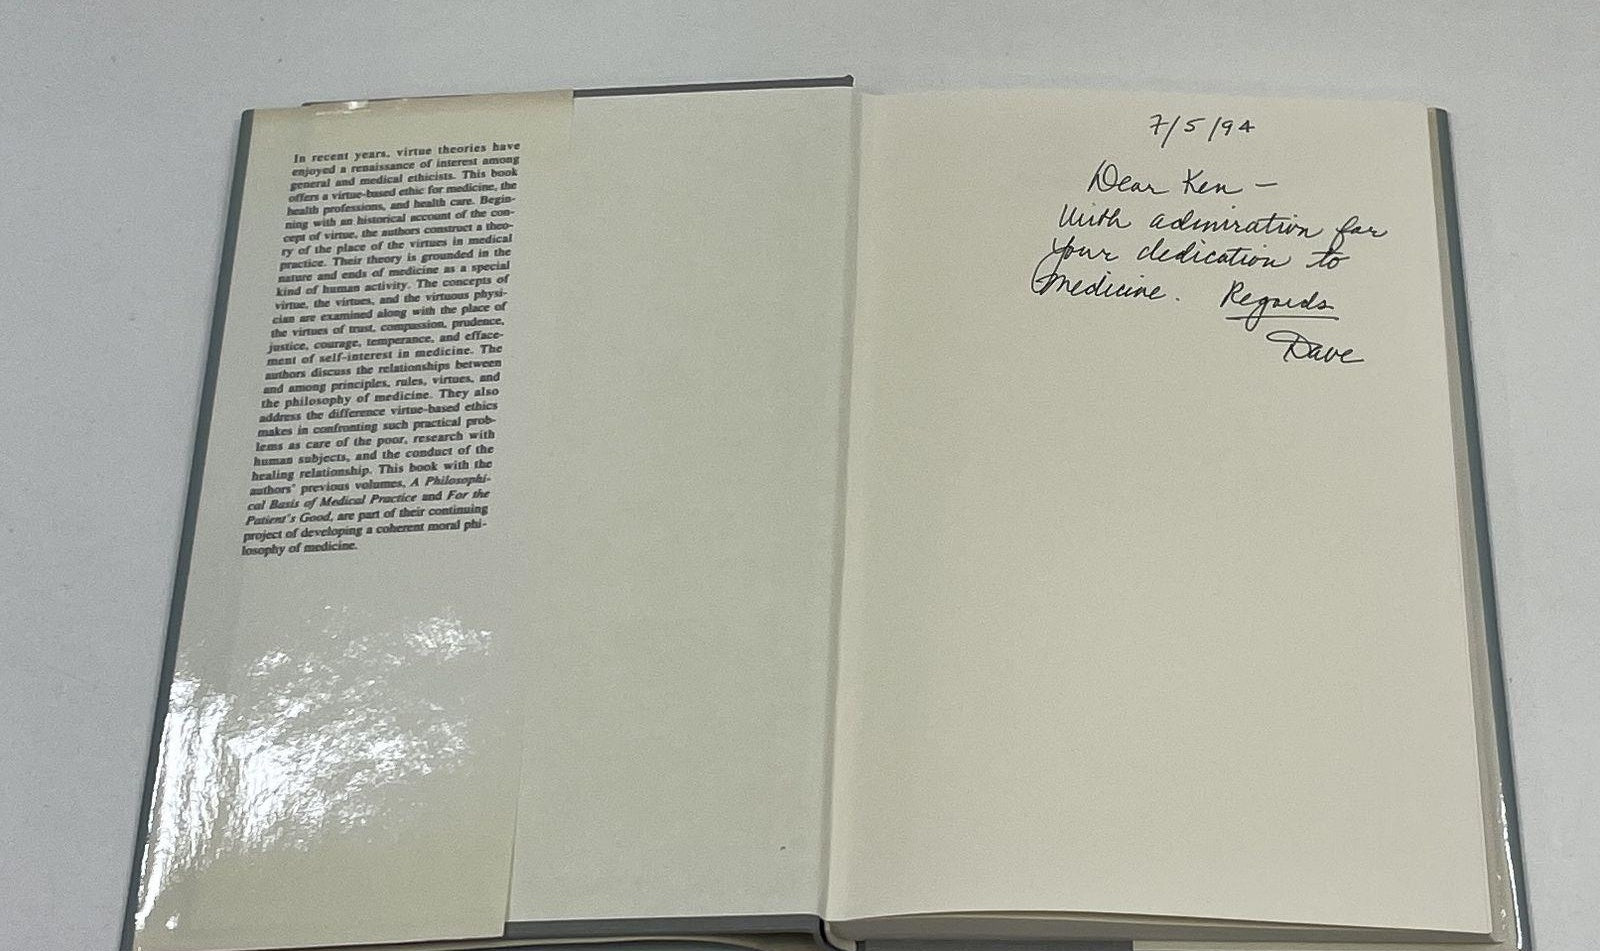 In recent years, virtue theories have
enjoyed a renaissance of interest among
general and medical ethicists. This book
offers a virtue-based ethic for medicine, the
health professions, and health care. Begin-
ning with an historical account of the con-
cept of virtue, the authors construct a theo-
ry of the place of the virtues in medical
practice. Their theory is grounded in the
nature and ends of medicine as a special
kind of human activity. The concepts of
virtue, the virtues, and the virtuous physi-
cian are examined along with the place of
the virtues of trust, compassion, prudence,
justice, courage, temperance, and efface-
ment of self-interest in medicine. The
authors discuss the relationships between
and among principles, rules, virtues, and
the philosophy of medicine. They also
address the difference virtue-based ethics
makes in confronting such practical prob-
lems as care of the poor, research with
human subjects, and the conduct of the
healing relationship. This book with the
authors' previous volumes, A Philosophi-
cal Basis of Medical Practice and For the
Patient's Good, are part of their continuing
project of developing a coherent moral phi-
losophy of medicine.
7/5/94
Dear Ken –
With admiration for
your dedication to
Medicine. Regards
Dave